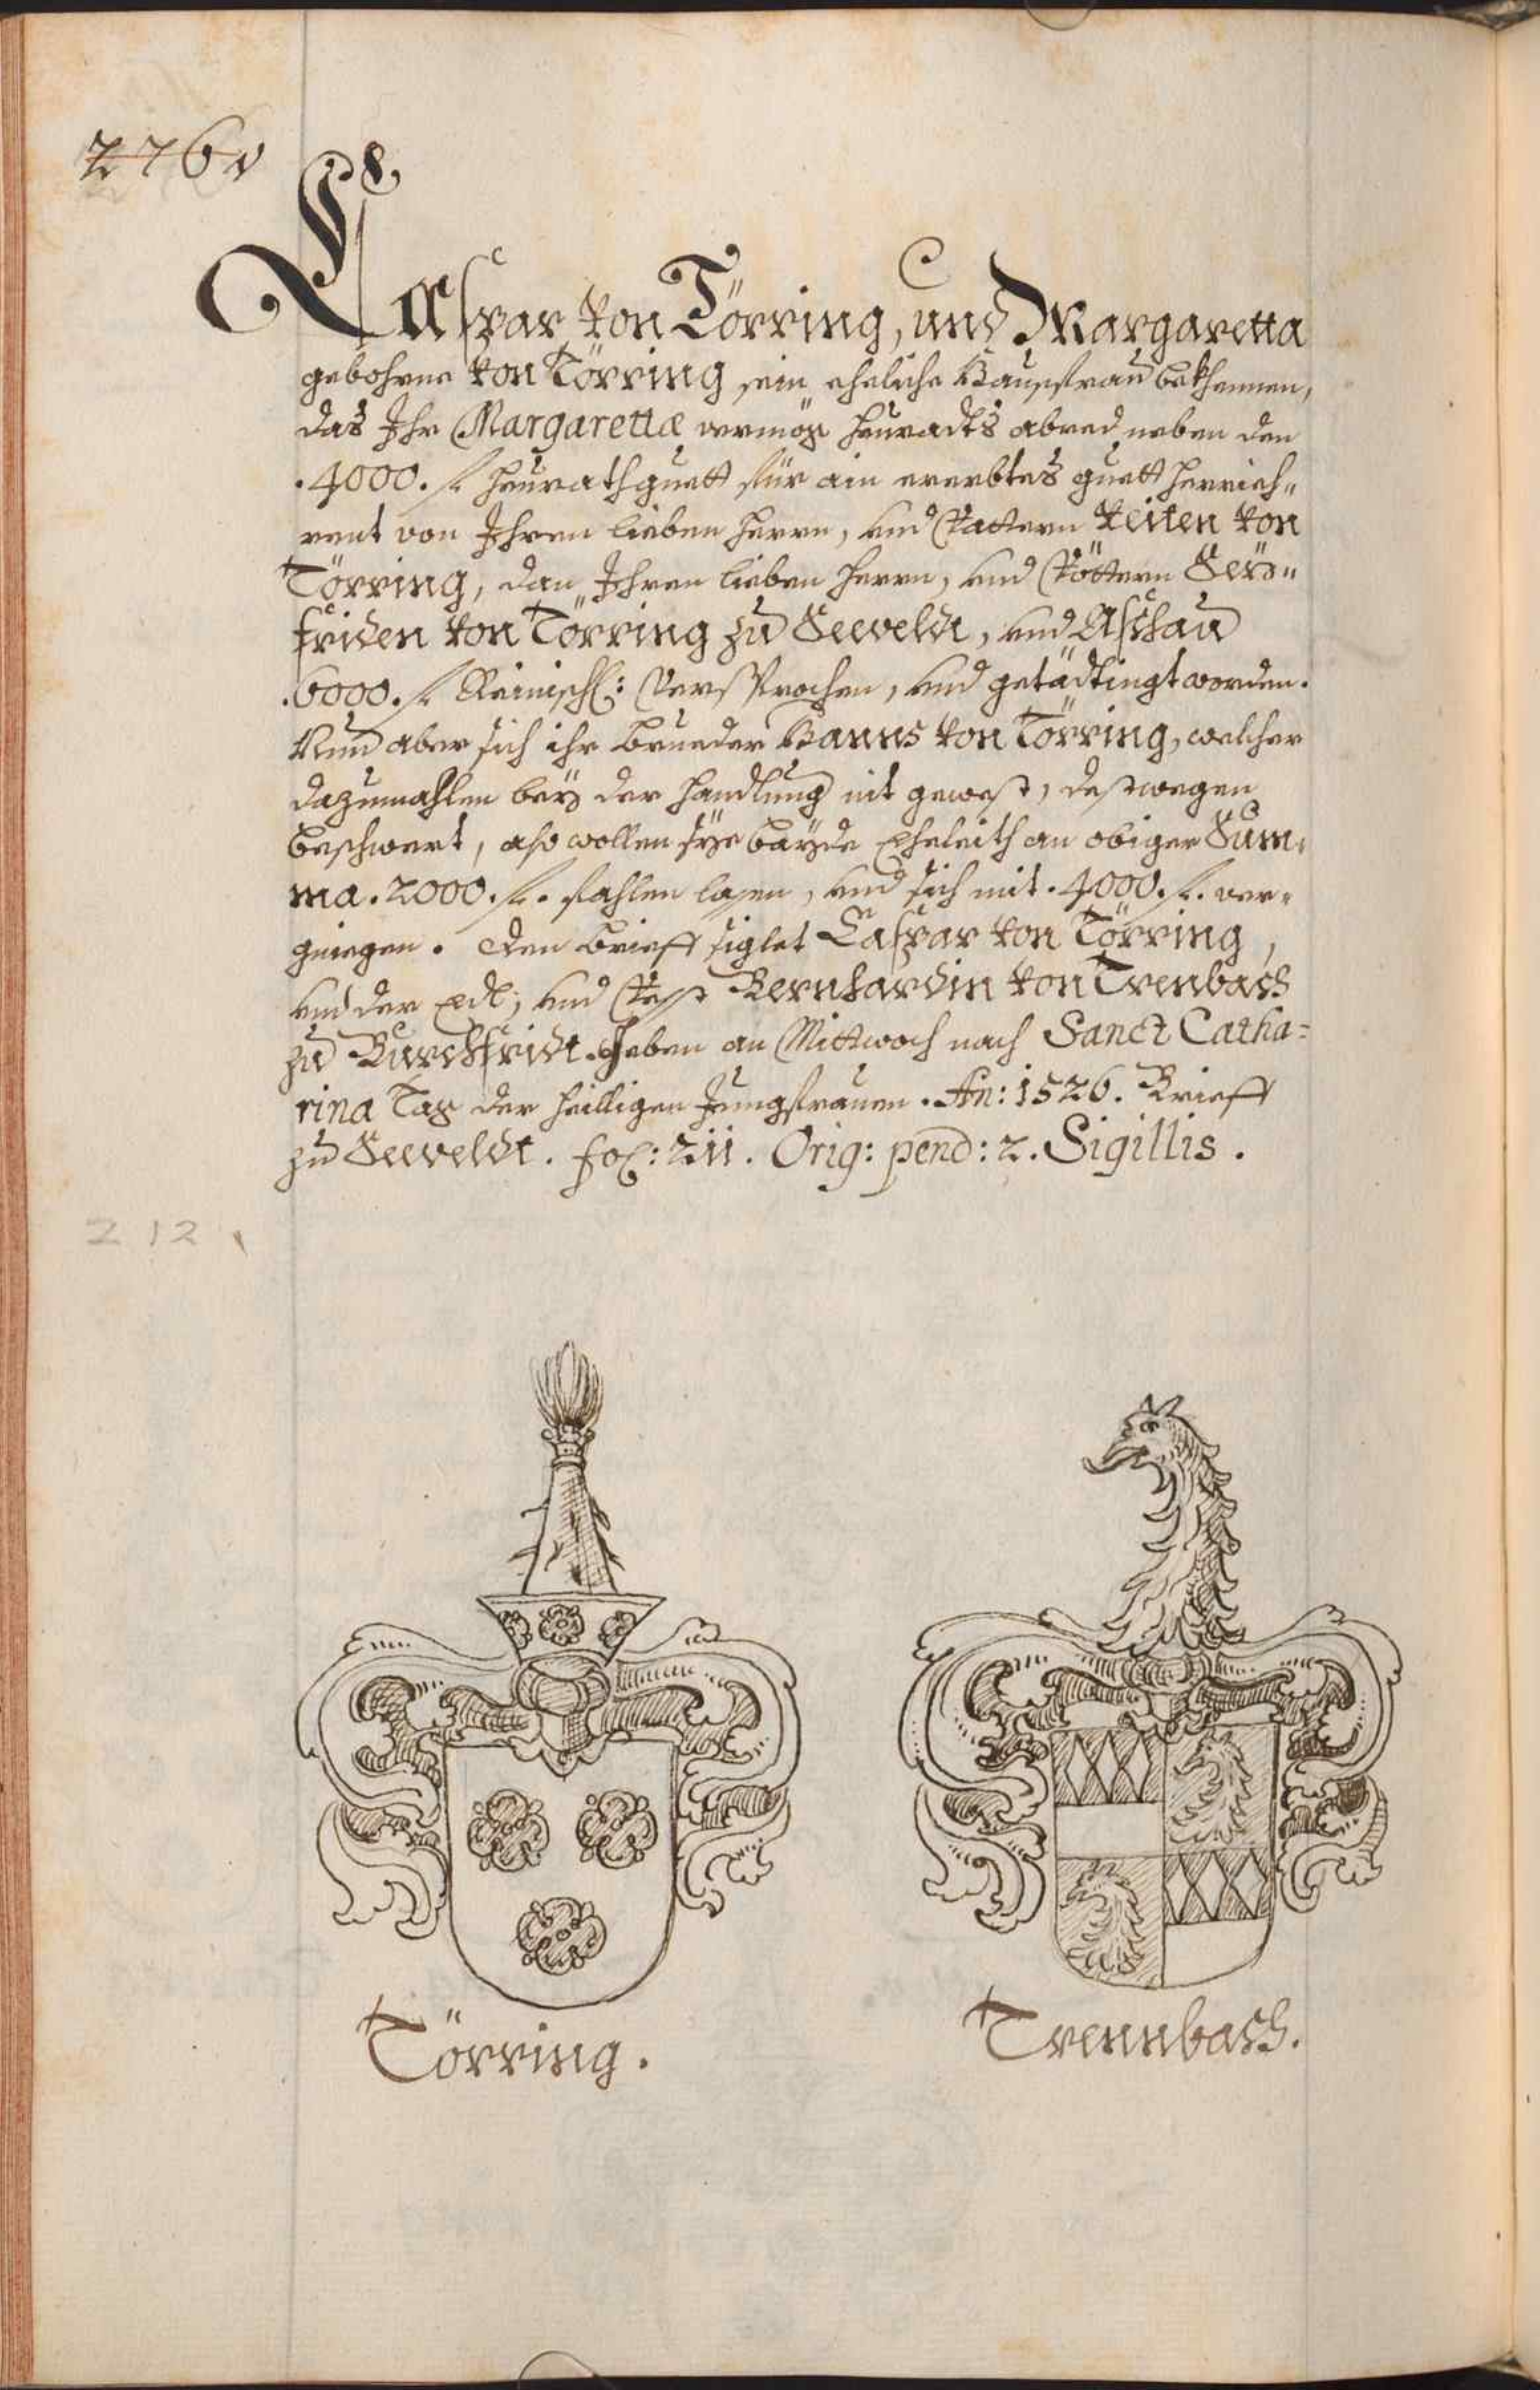 2760
Caspar von Törring, und Margaretta
gebohrne von Törring sein eheliche Haussfrau bekhennen,
das Ihr Margarettæ vermög heuradts abred neben den
.4000. fl. heurathguett für ain ererbtes guett herrieh„
rent von Ihren lieben herrn, und Vattern Veiten von
Törring, dan Ihren lieben herrn, und Vöttern Seÿ„
friden von Törring zu Seeveldt, und Aschau
.6000. fl. Reinisch: Versprochen, und getädtingt worden.
Nun aber sich ihr brueder Hanns von Törring, welcher
dazumahlen beÿ der handlung nit gewest, destwegen
beschwert, also wollen sÿe baÿde Eheleith an obiger Sum„
ma .2000. fl. fahlen lassen, und sich mit .4000. fl. ver„
gniegen. Den brieff siglet Caspar von Törring,
und der Edl, und Vest Bernhardin von Trenbach
zu Burckfridt. Geben an Mittwoch nach Sanct Catha=
rina Tag der heilligen Jungfrauen. An: 1526. Brieff
zu Seeveldt. fol: 211. Orig: pend: 2. Sigillis.
212
Törring.
Trennbach.